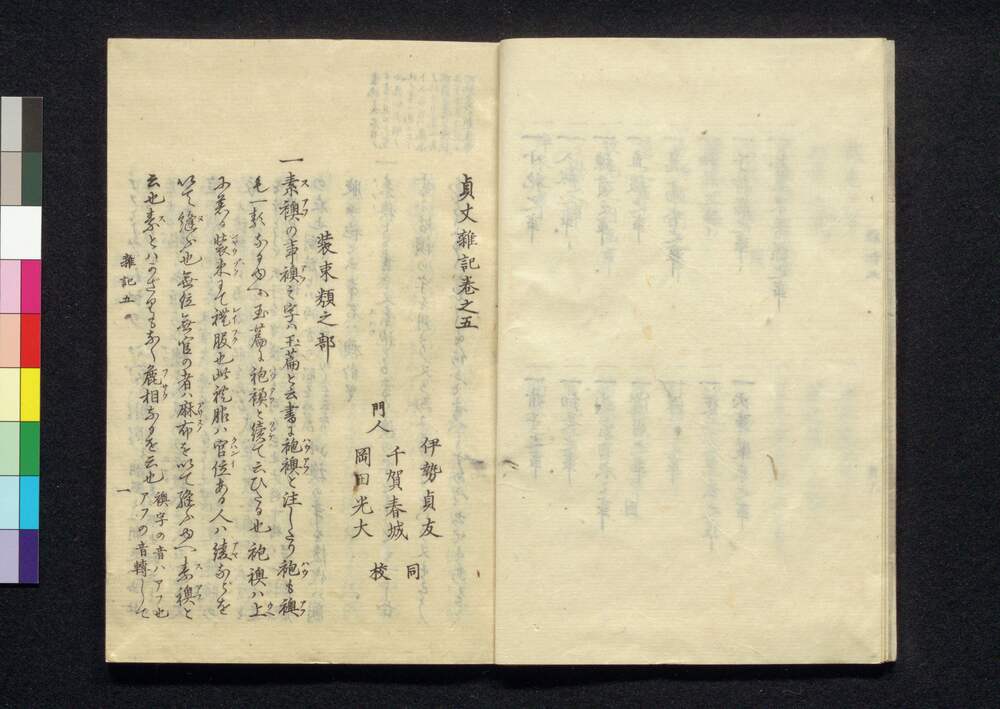 貞丈雜記卷之五
伊勢貞友
門人 千賀春城 同
岡田光大 校
装束類之部
一素襖の事襖之字ハ玉篇と云書に袍襖と注したり袍も襖
も一類なるゆへ玉篇に袍襖と續て云ひたる也袍襖ハ上
に着る装束にて禮服也此禮服ハ官位ある人ハ綾などを
以て縫ふ也無位無官の者ハ麻布を以て縫ふゆへ素襖と
云也素とハかざりもなく麁相なるを云也 襖字の音ハアフ也
アフの音轉して
雜記五
一